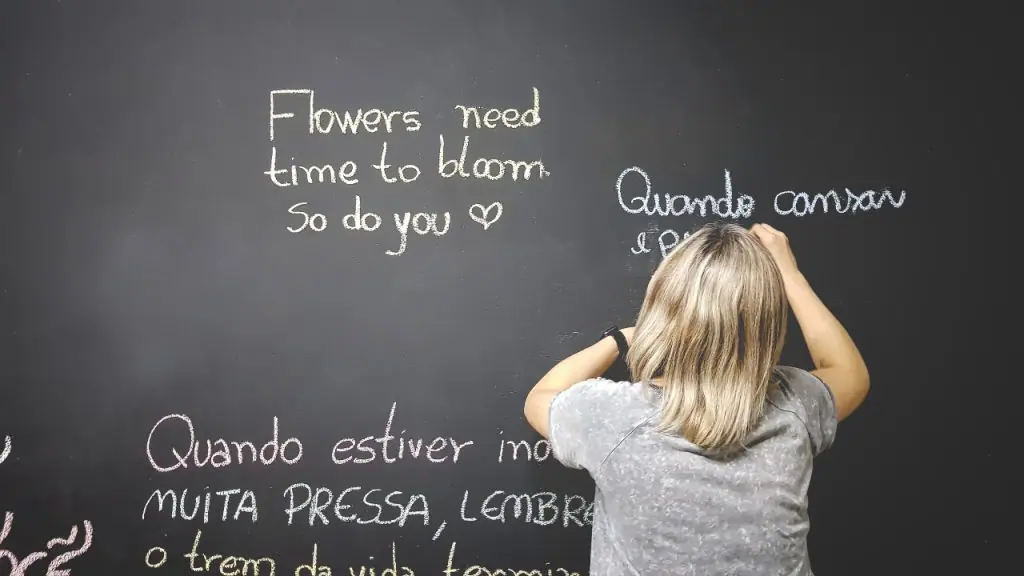 Flowers need
time to bloom
so do you ♡
Quando cansar
Quando estiver
MUITA PRESSA,
o trem da vida